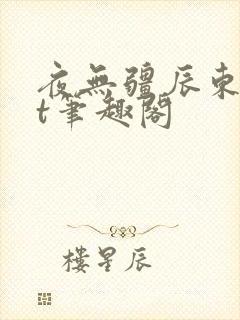 夜無疆辰東
t筆趣閣
樓星辰